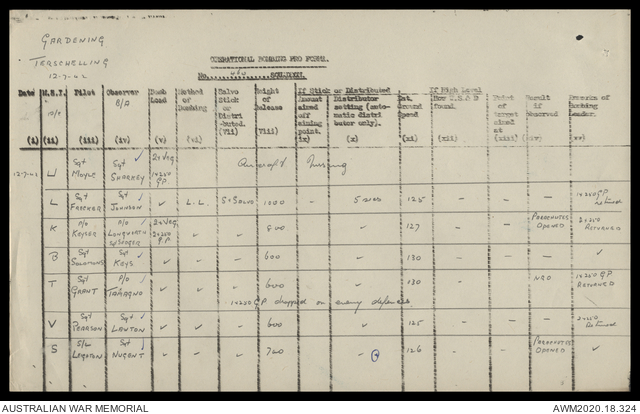 GARDENING
TERSCHELLING
12-7-42
OPERATIONAL BOMBING PRO FORMA.
No. 460 SQUADRON.
Date M.S.T. Pilot Observer Bomb Load Method of Bombing Salvo Stick or Distributed. Height of Release If Stick or Distributed Amount aimed off aiming point. Distributor setting (automatic distributor only). Est. Ground Speed If High Level How T.S.&D found. Point of target aimed at Result if observed Remarks of bombing Leader.
B/A
(i) (ii) (iii) (iv) (v) (vi) (vii) (viii) ix) (x) (xi) (xii) (xiii) (xiv) (xv)
12-7-42 U Sgt MOYLE Sgt SHARKEY 2x Veg 1x250 G.P. Aircraft Missing
L Sgt FARQUHAR Sgt JOHNSON ✓ L.L. S-SALVO 1000 - 5 secs 125 - - - 1x250 GP returned
K P/O KEYSER P/O LONGWORTH 2x Veg 2x250 G.P ✓ ✓ 500 - ✓ 127 - - PARACHUTES OPENED 2x250 RETURNED
B Sgt SOLOMONS Sgt KEYS ✓ ✓ ✓ 600 - ✓ 130 - - - ✓
T Sgt GRANT P/O TAMAGNO ✓ ✓ ✓ 600 - ✓ 130 - - 1x250 GP RETURNED
1x250 GP dropped on enemy defences
V Sgt PEARSON Sgt LAWTON ✓ ✓ ✓ 600 ✓ 125 - - - 2x250 Returned
S S/L LEIGHTON Sgt NUGENT ✓ ✓ ✓ 700 - ✓ 126 - - PARACHUTES OPENED ✓
AUSTRALIAN WAR MEMORIAL
AWM2020.18.324